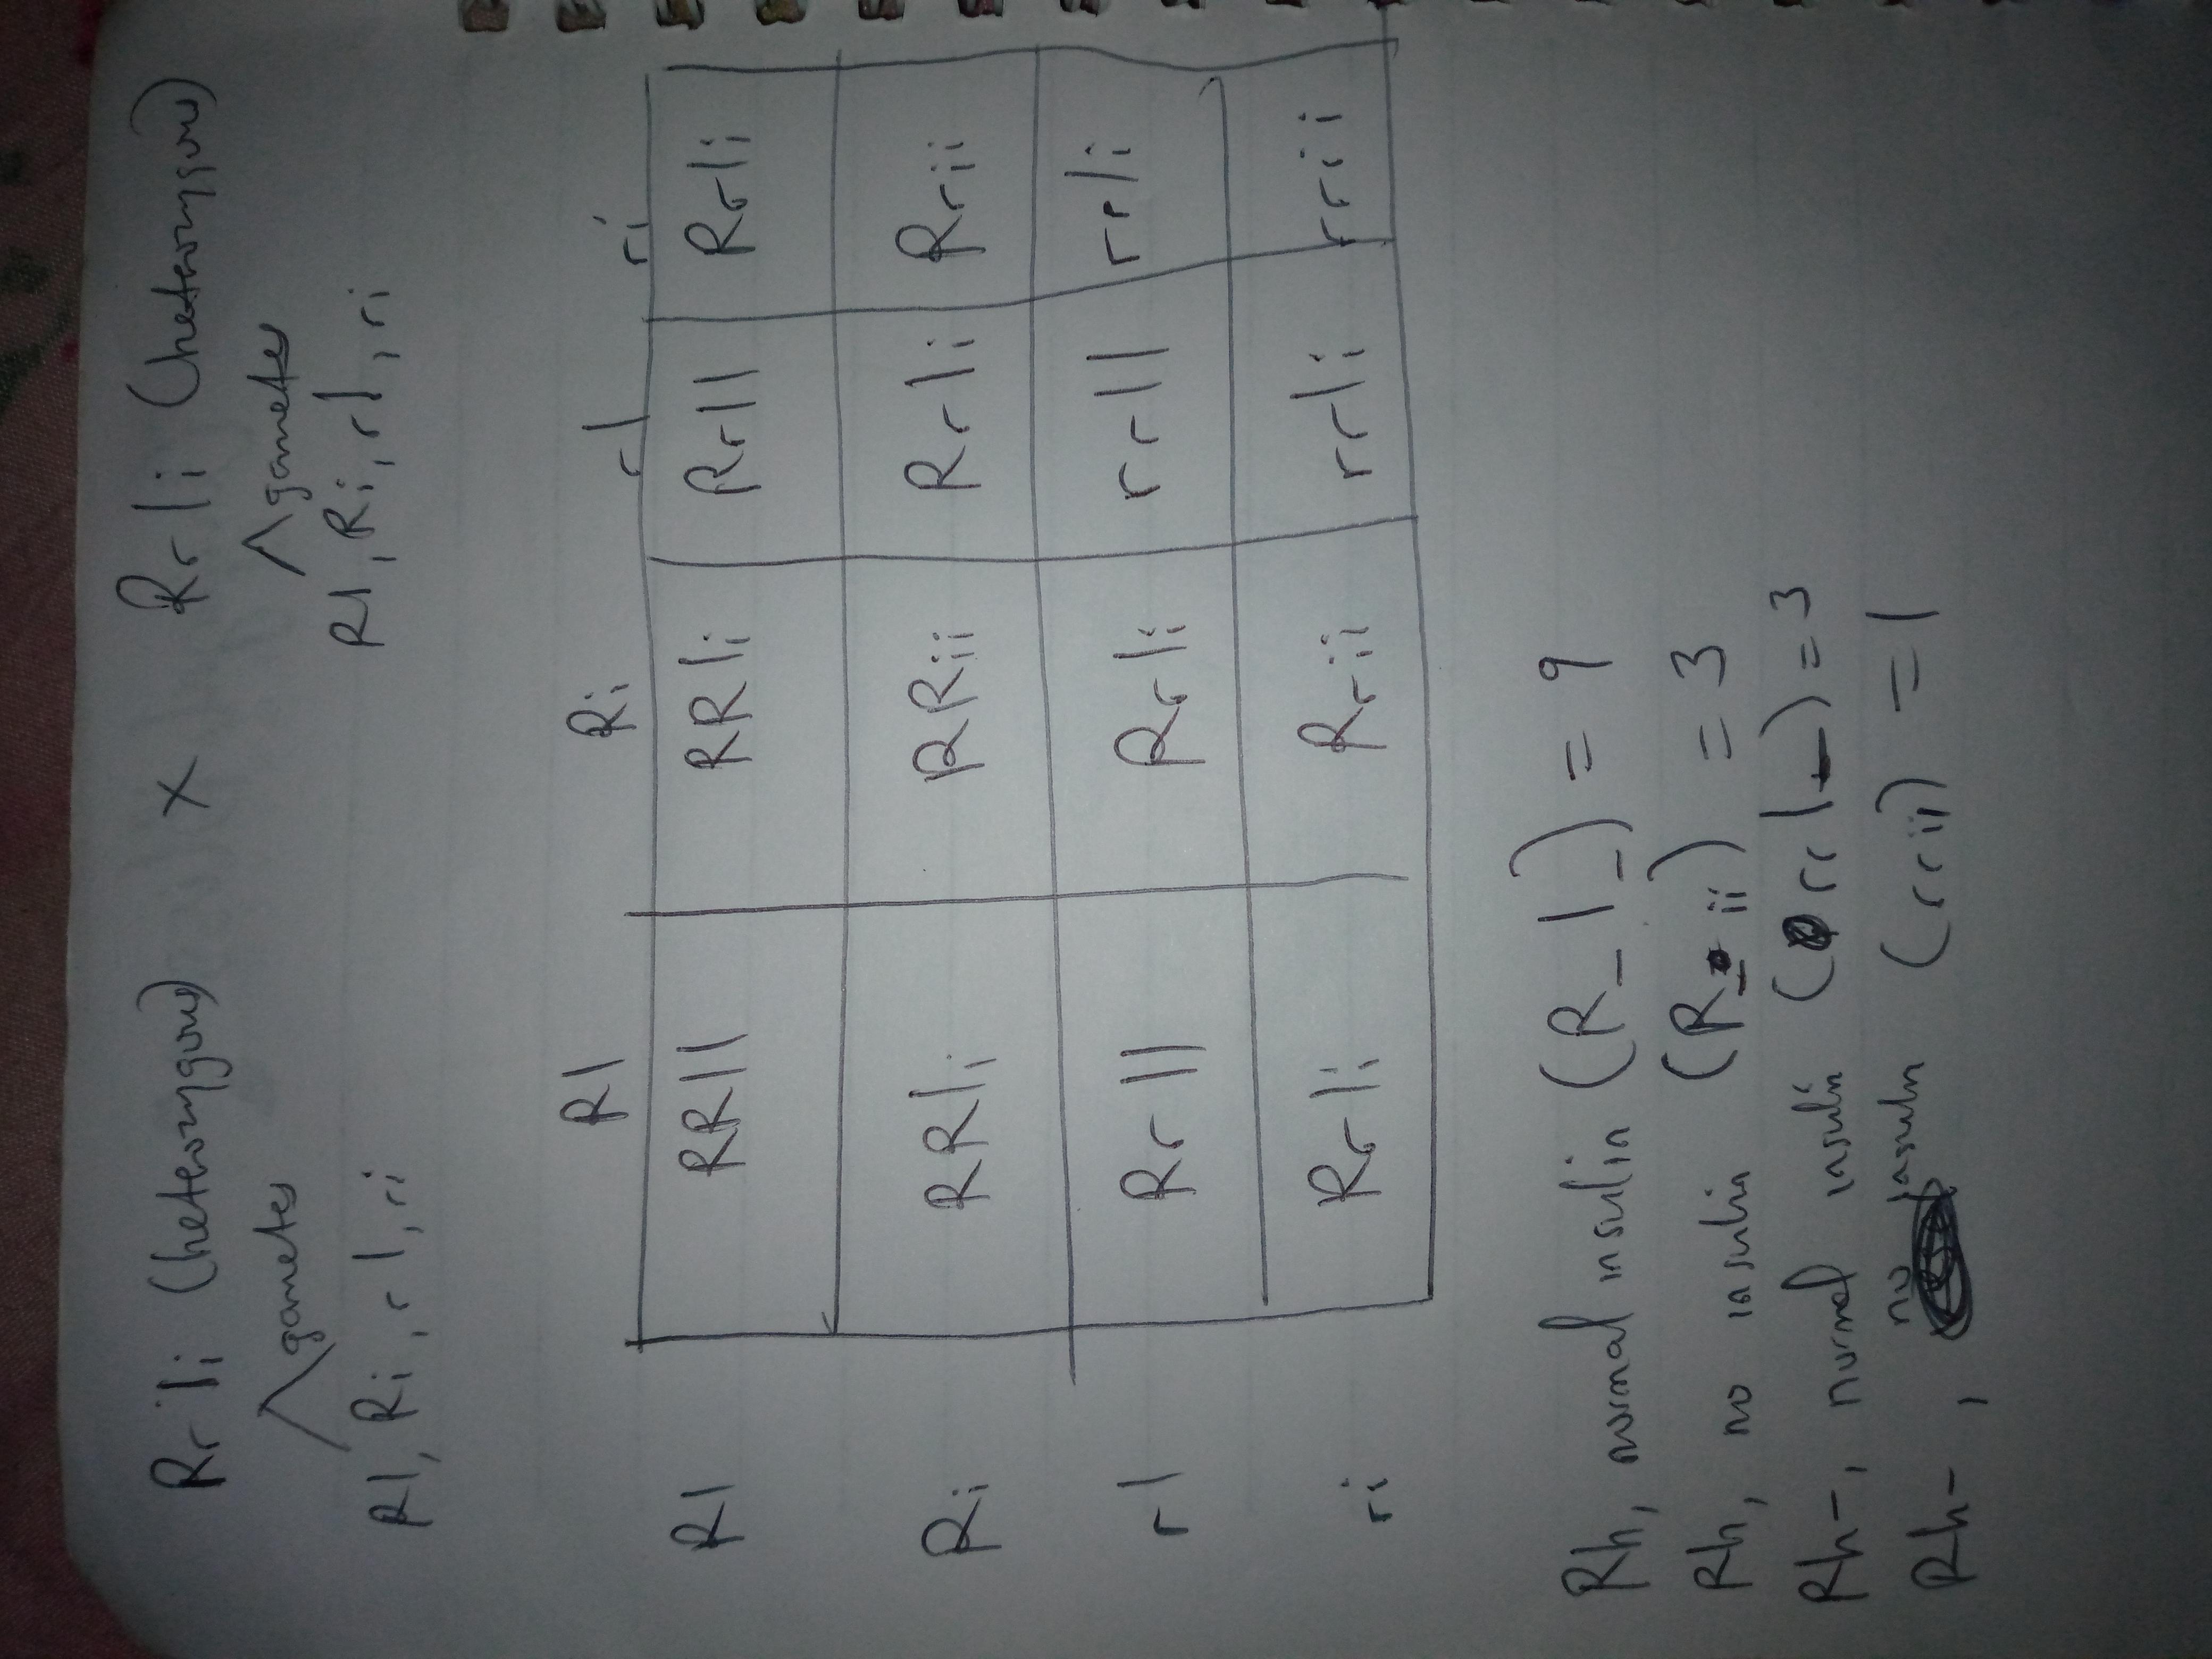 Rr Ii (heterozygous) × Rr Ii (heterozygous)
gametes gametes
RI, Ri, rI, ri RI, Ri, rI, ri
RI Ri rI ri
RI RRII RRIi RrII RrIi
Ri RRIi RRii RrIi Rrii
rI RrII RrIi rrII rrIi
ri RrIi Rrii rrIi rrii
Rh, normal insulin (R_I_) = 9
Rh, no insulin (R_ii) = 3
Rh-, normal insulin (rrI_) = 3
Rh-, no insulin (rrii) = 1